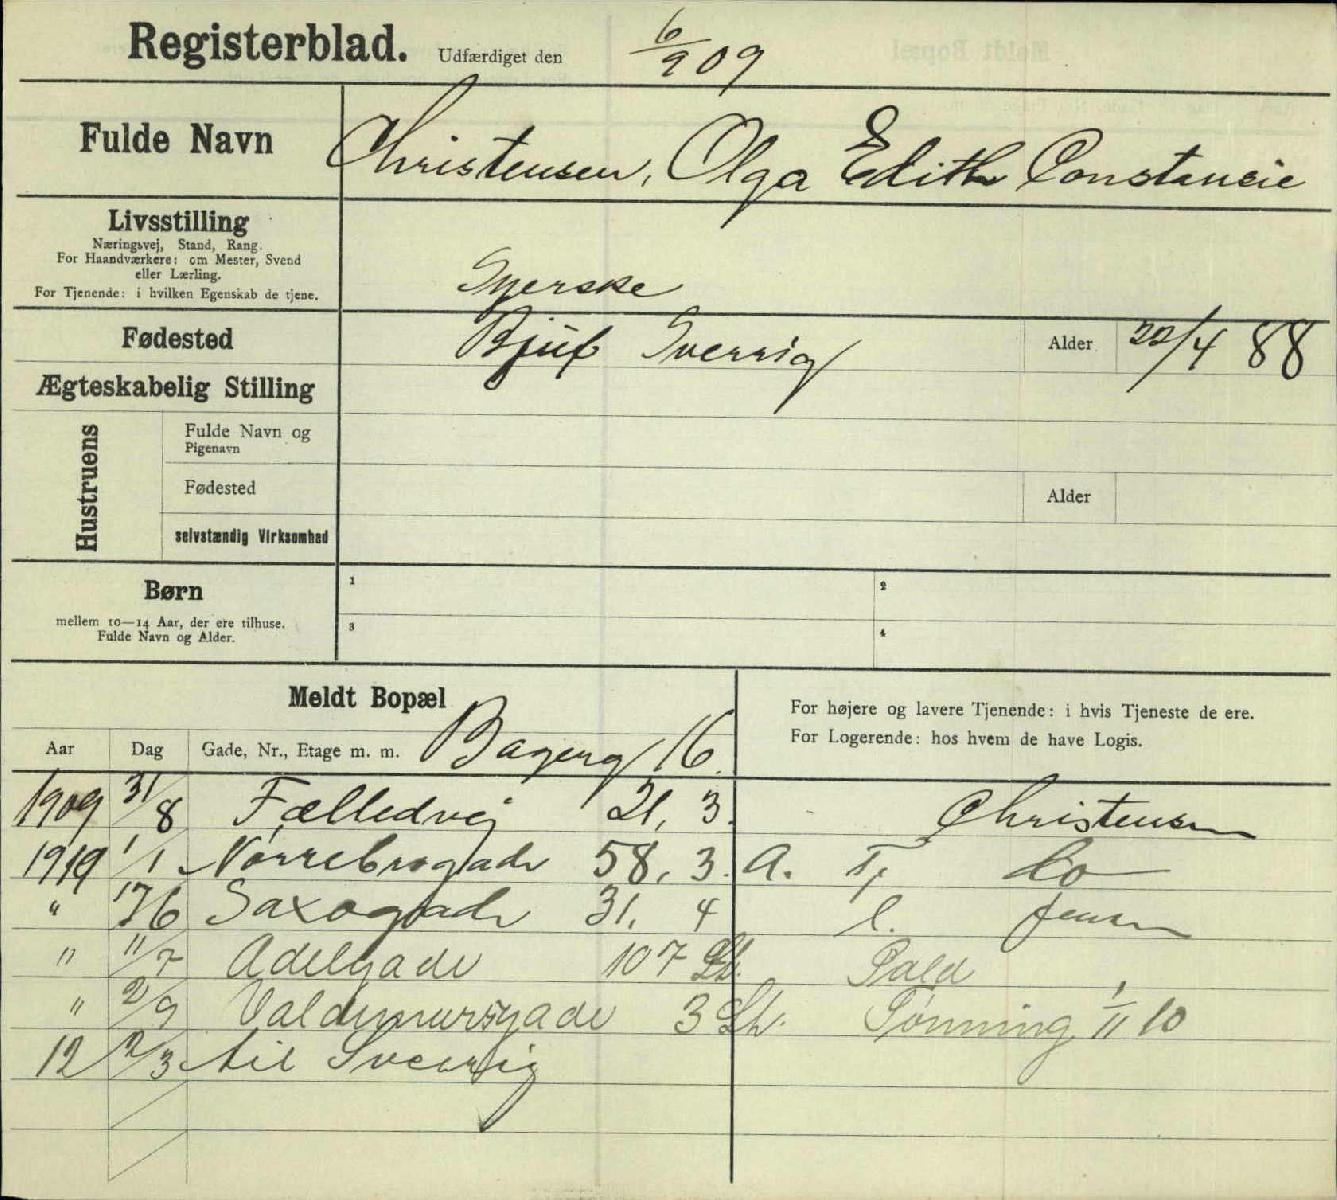 Registerblad. Udfærdiget den 6/9 09
Fulde Navn Christensen, Olga Edith Constancie
Livsstilling
Næringsvej, Stand, Rang.
For Haandværkere: om Mester, Svend
eller Lærling.
For Tjenende: i hvilken Egenskab de tjene.
Syerske
Fødested Bjuf Sverrig Alder 22/4 88
Ægteskabelig Stilling
Hustruens
Fulde Navn og
Pigenavn
Fødested Alder
selvstændig Virksomhed
Børn
mellem 10—14 Aar, der ere tilhuse.
Fulde Navn og Alder.
1 2
3 4
Meldt Bopæl
For højere og lavere Tjenende: i hvis Tjeneste de ere.
For Logerende: hos hvem de have Logis.
Aar Dag Gade, Nr., Etage m. m. Bagerg 16
1909 31/8 Fælledvej 21, 3. Christensen
1910 1/1 Nørrebrogade 58, 3. A. T, do
" 17/6 Saxogade 31, 4 l. Jensen
" 11/7 Adelgade 107 St. Pald
" 2/9 Valdemarsgade 3 St. Tønning 1/11 10
12 2/3 til Sverrig